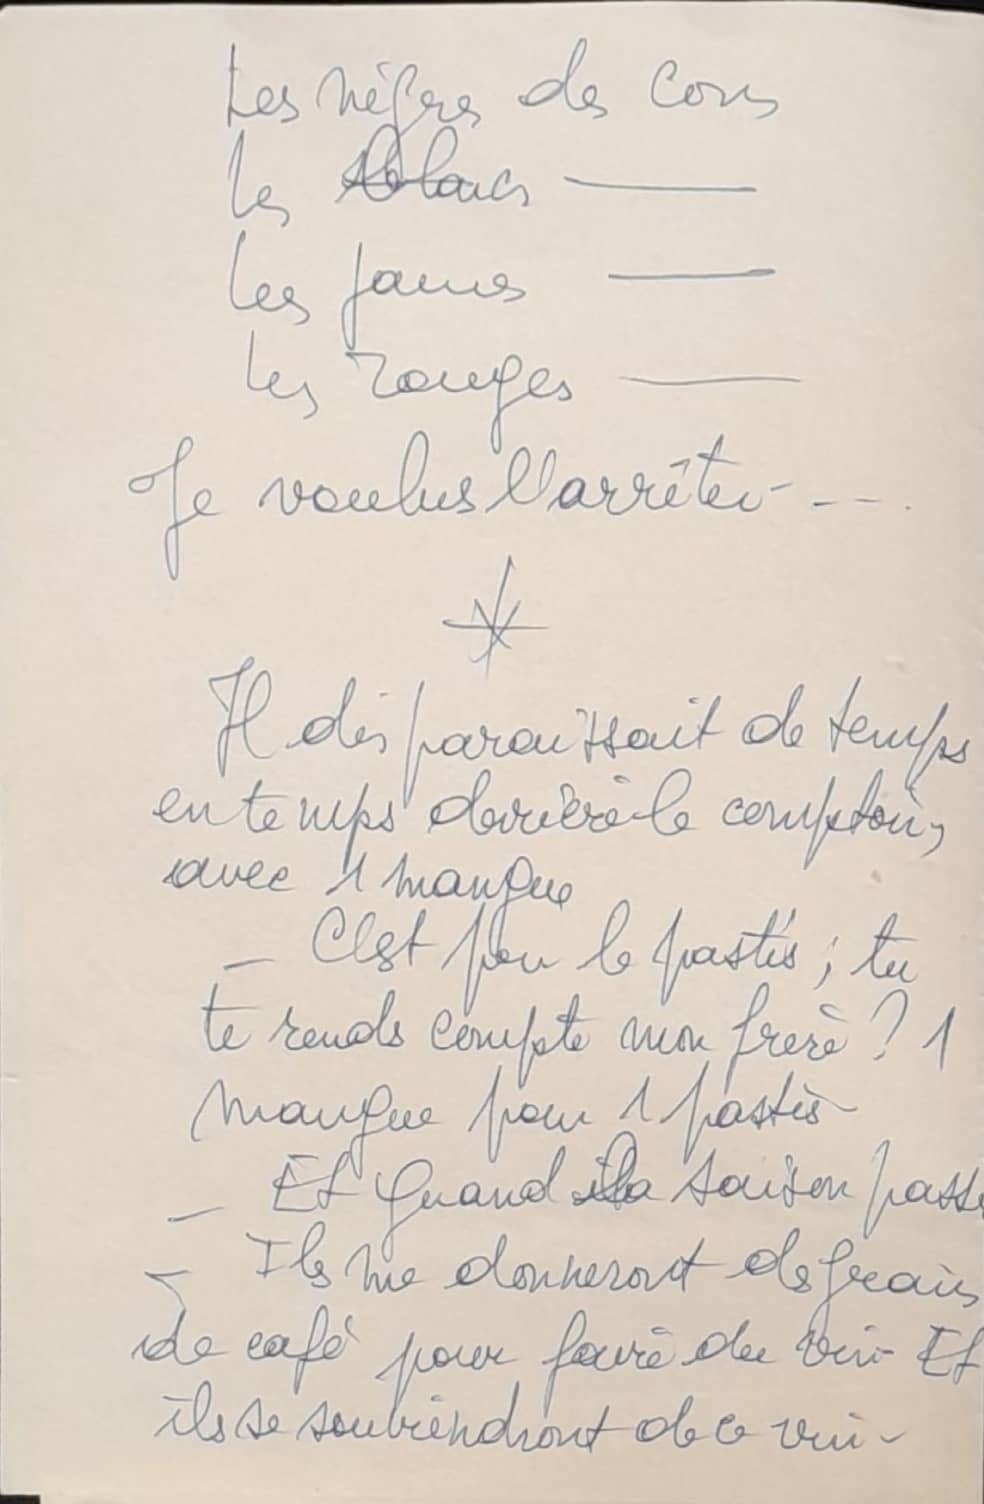 Les nègres des cons
Les blancs ———
Les jaunes ———
Les rouges ———
Je voulus l'arrêter - - - .
*
Il disparaissait de temps
en temps derrière le comptoir,
avec 1 mangue
– C'est pour le pastis ; tu
te rends compte mon frère ? 1
mangue pour 1 pastis -
– Et quand la saison passe
– Ils me donneront des grains
de café pour faire du vin - Et
ils se souviendront de ce vin -